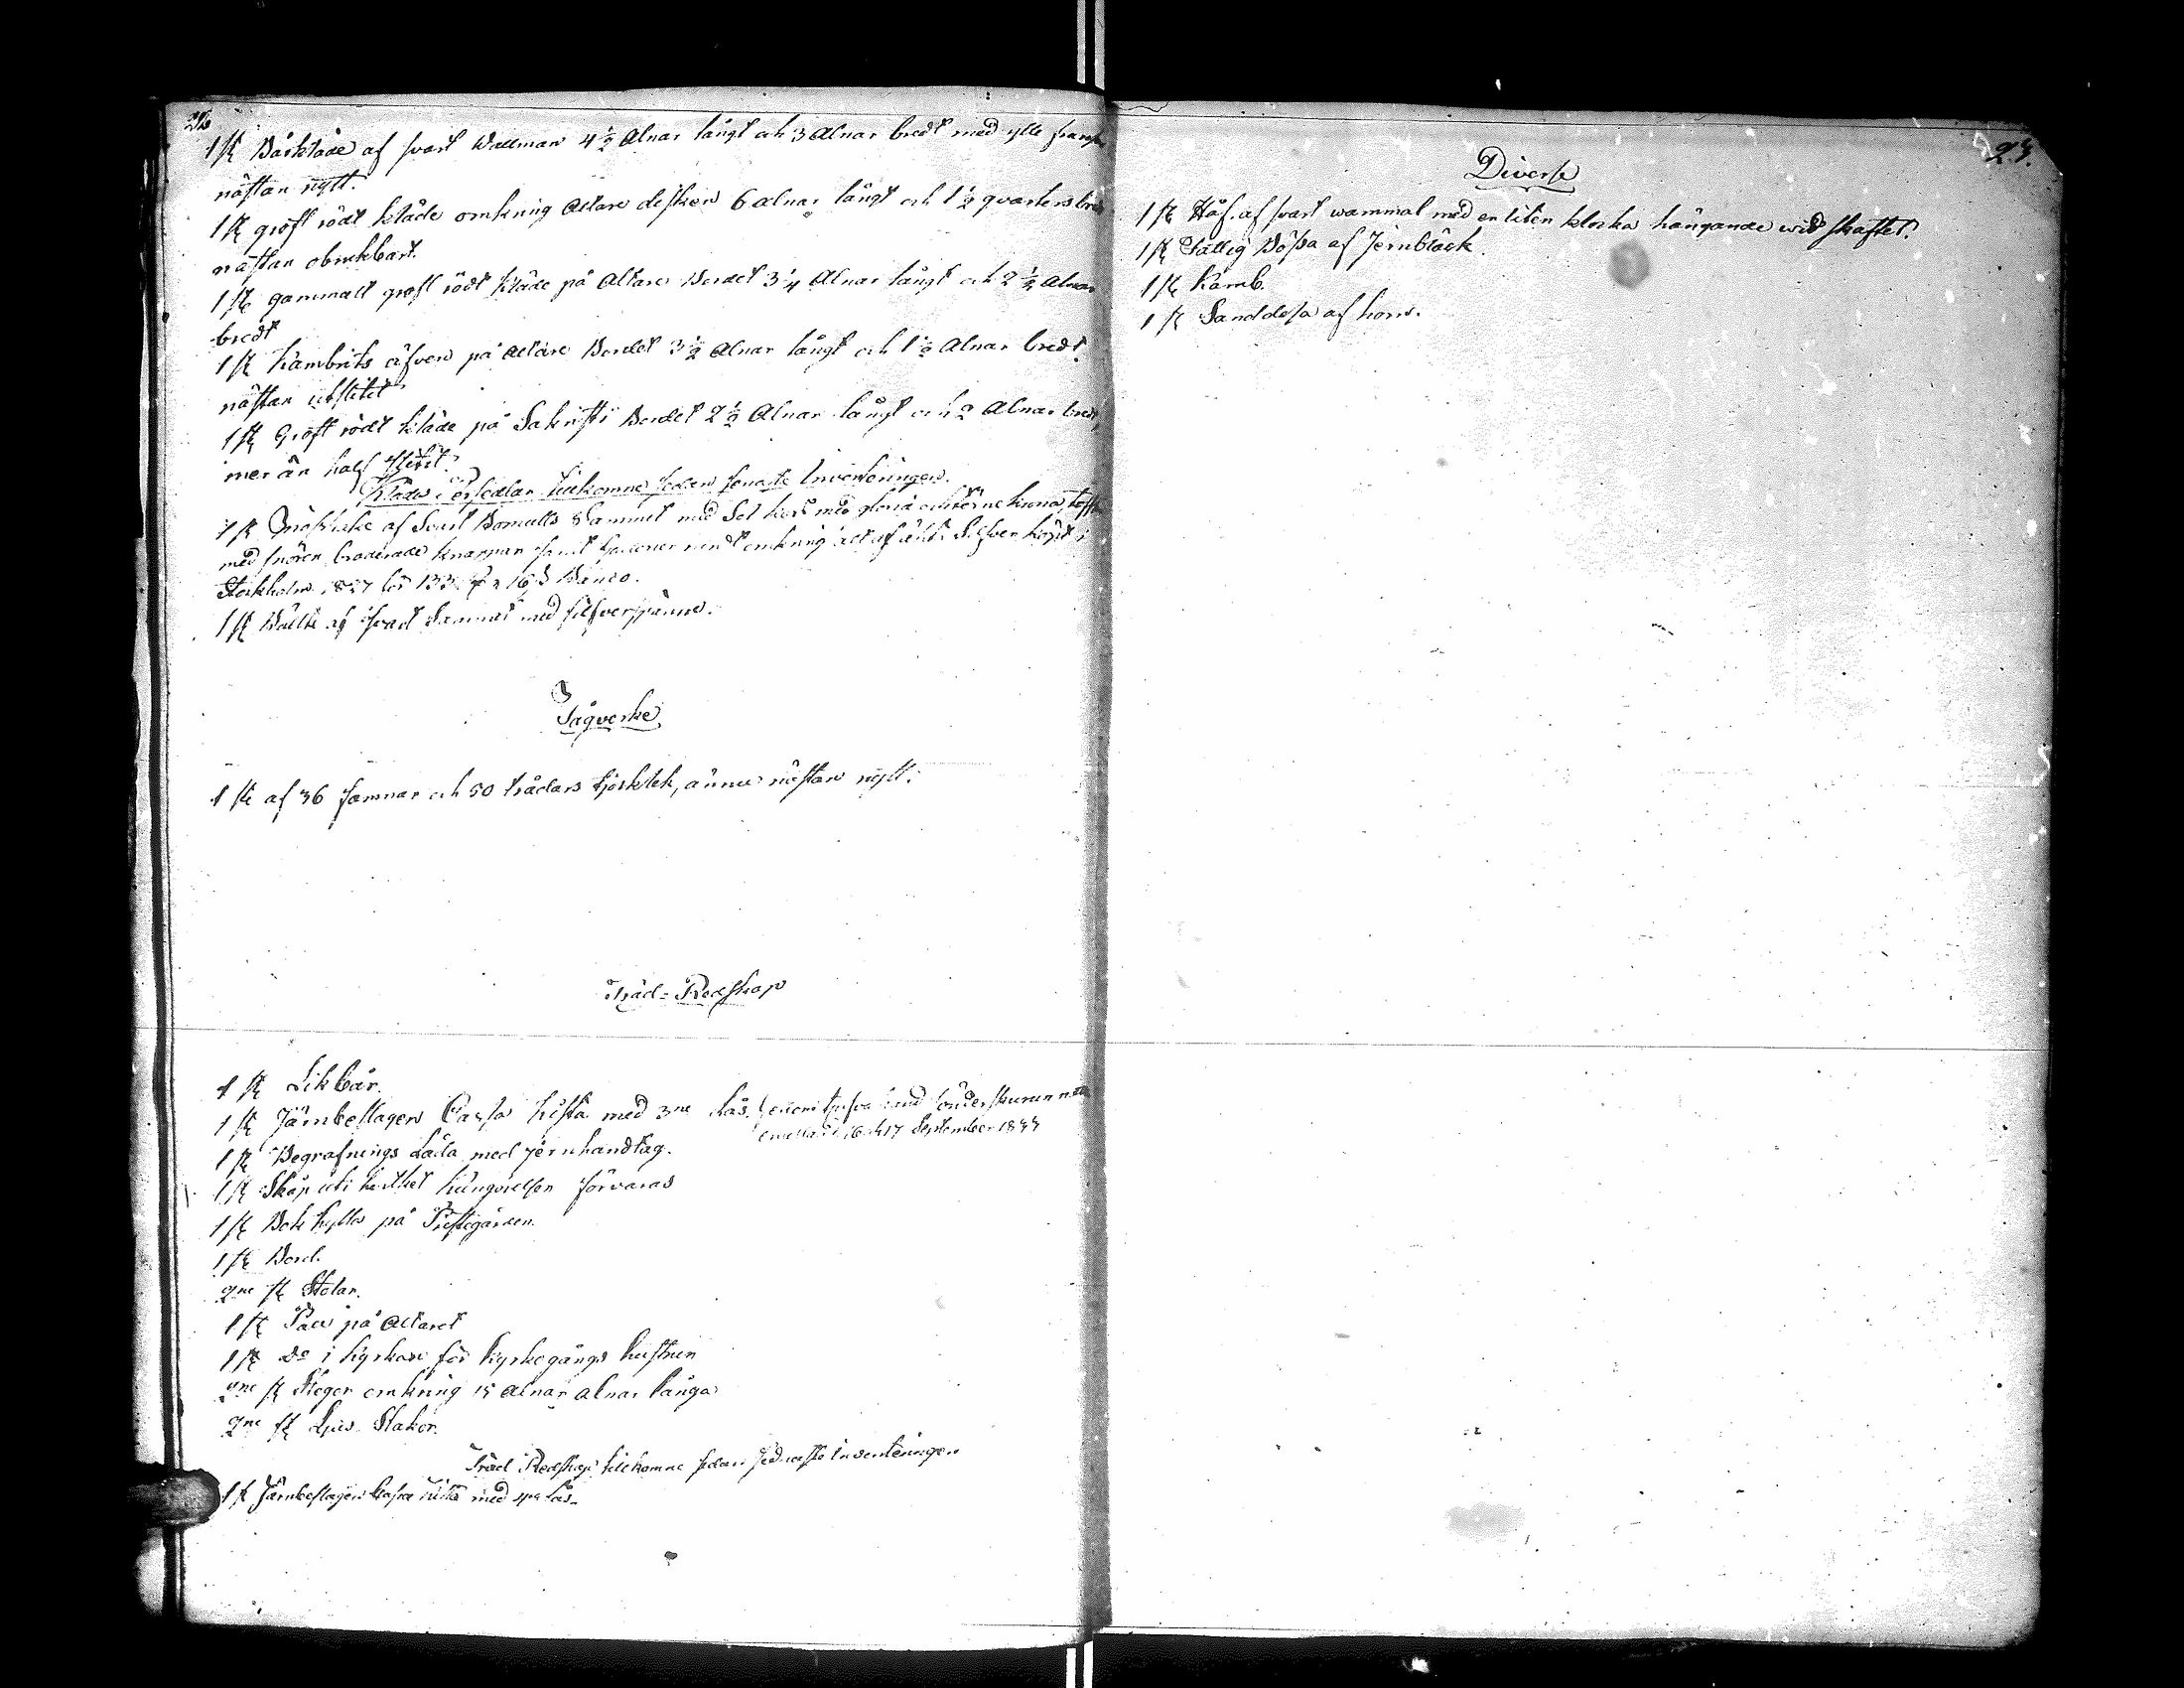 26
1 st Bårkläde af svart Wallman 4 1/2 Alnar långt och 3 Alnar bredt med ylle
nästan nytt.
1 st gröft rödt kläde omkring Altare disken 6 alnar långt och 1 1/2 qvarters
nästan obrukbart.
1 st gammalt gröft rödt kläde på Altare Bordet 3 1/4 Alnar långt och 2 1/2 Alnar
bredt
1 st Kambriks äfven på Altare Bordet 3 1/2 Alnar långt och 1 1/2 Alnar bredt.
nästan utslitit
1 st Gröft rödt kläde på Sakristi Bordet 2 1/2 Alnar långt och 2 Alnar bredt,
mer än half slitit.
Kläde Persedlar tillkomne sedan senaste Inventeringen.
1 st Mässhake af Svart Bomulls Sammet med Sol kors med gloria och törne krona,
med snören broderade knappar samt galoner rundt omkring alt af äkta Silfver köpt i
Stockholm 1837 för 133 16 s Banco.
1 st Bälte af svart Sammet med silfverspänne.
Tågverke
1 st af 36 famnar och 50 trådars tjocklek, ännu nästan nytt.
Träd-Redskap
1 st Likbår.
1 st Järnbeslagen Cassa kista med 3ne Lås. genom tjufva hand sönderskuren natten
emellan d. 16 och 17 September 1844
1 st Begrafnings Låda med jernhandtag.
1 st Skåp uti hvilket kungörelser förvaras
1 st Bok hylla på Prestegården.
1 st Bord.
2ne st Stolar.
1 st Pall på Altaret
1 st Do i kyrkan för kyrkogångs hustrur
2ne st Stegar omkring 15 alnar alnar långa
2ne st Ljus Stakar.
Träd Redskap tillkomne sedan sednaste inventeringen
1 st Järnbeslagen Cassa kista med 4ra lås.
27.
Diverse
1 st Håf. af svart wammal med en liten klocka hängande wid skaftet.
1 st Fattig Bössa af Jernbläck.
1 st Kamb.
1 st Sanddosa af horn.